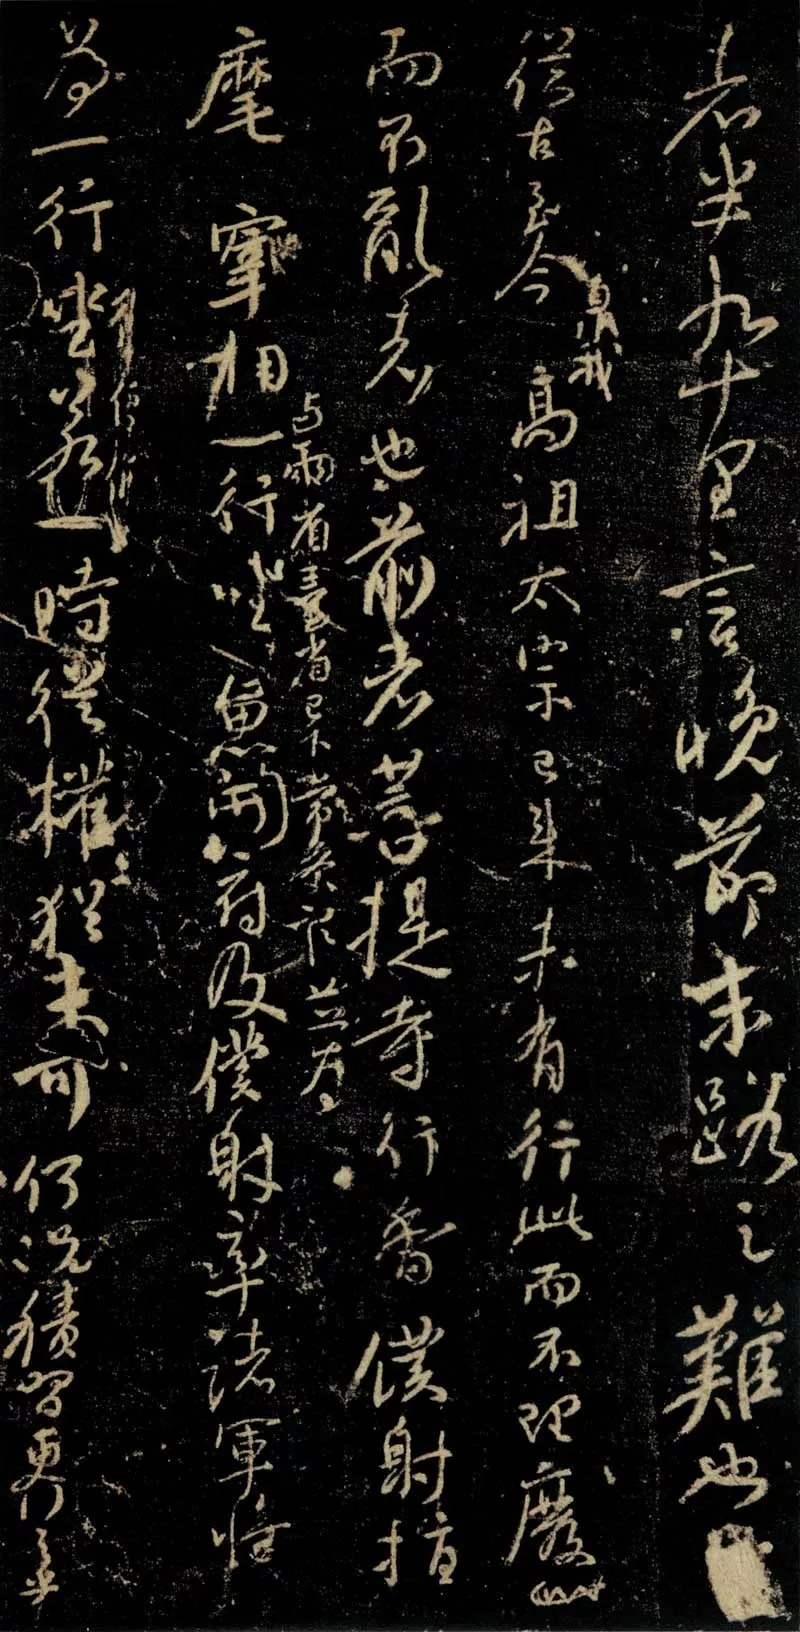 者半九十里言晚節末路之難也
從古至今臮我高祖太宗已來未有行此而不理廢
而不亂者也前者菩提寺行香僕射指
麾宰相与兩省臺省已下常參官並為一行坐魚開府及僕射率諸軍將
為一行坐若一時從權猶未可何況積習更行之乎